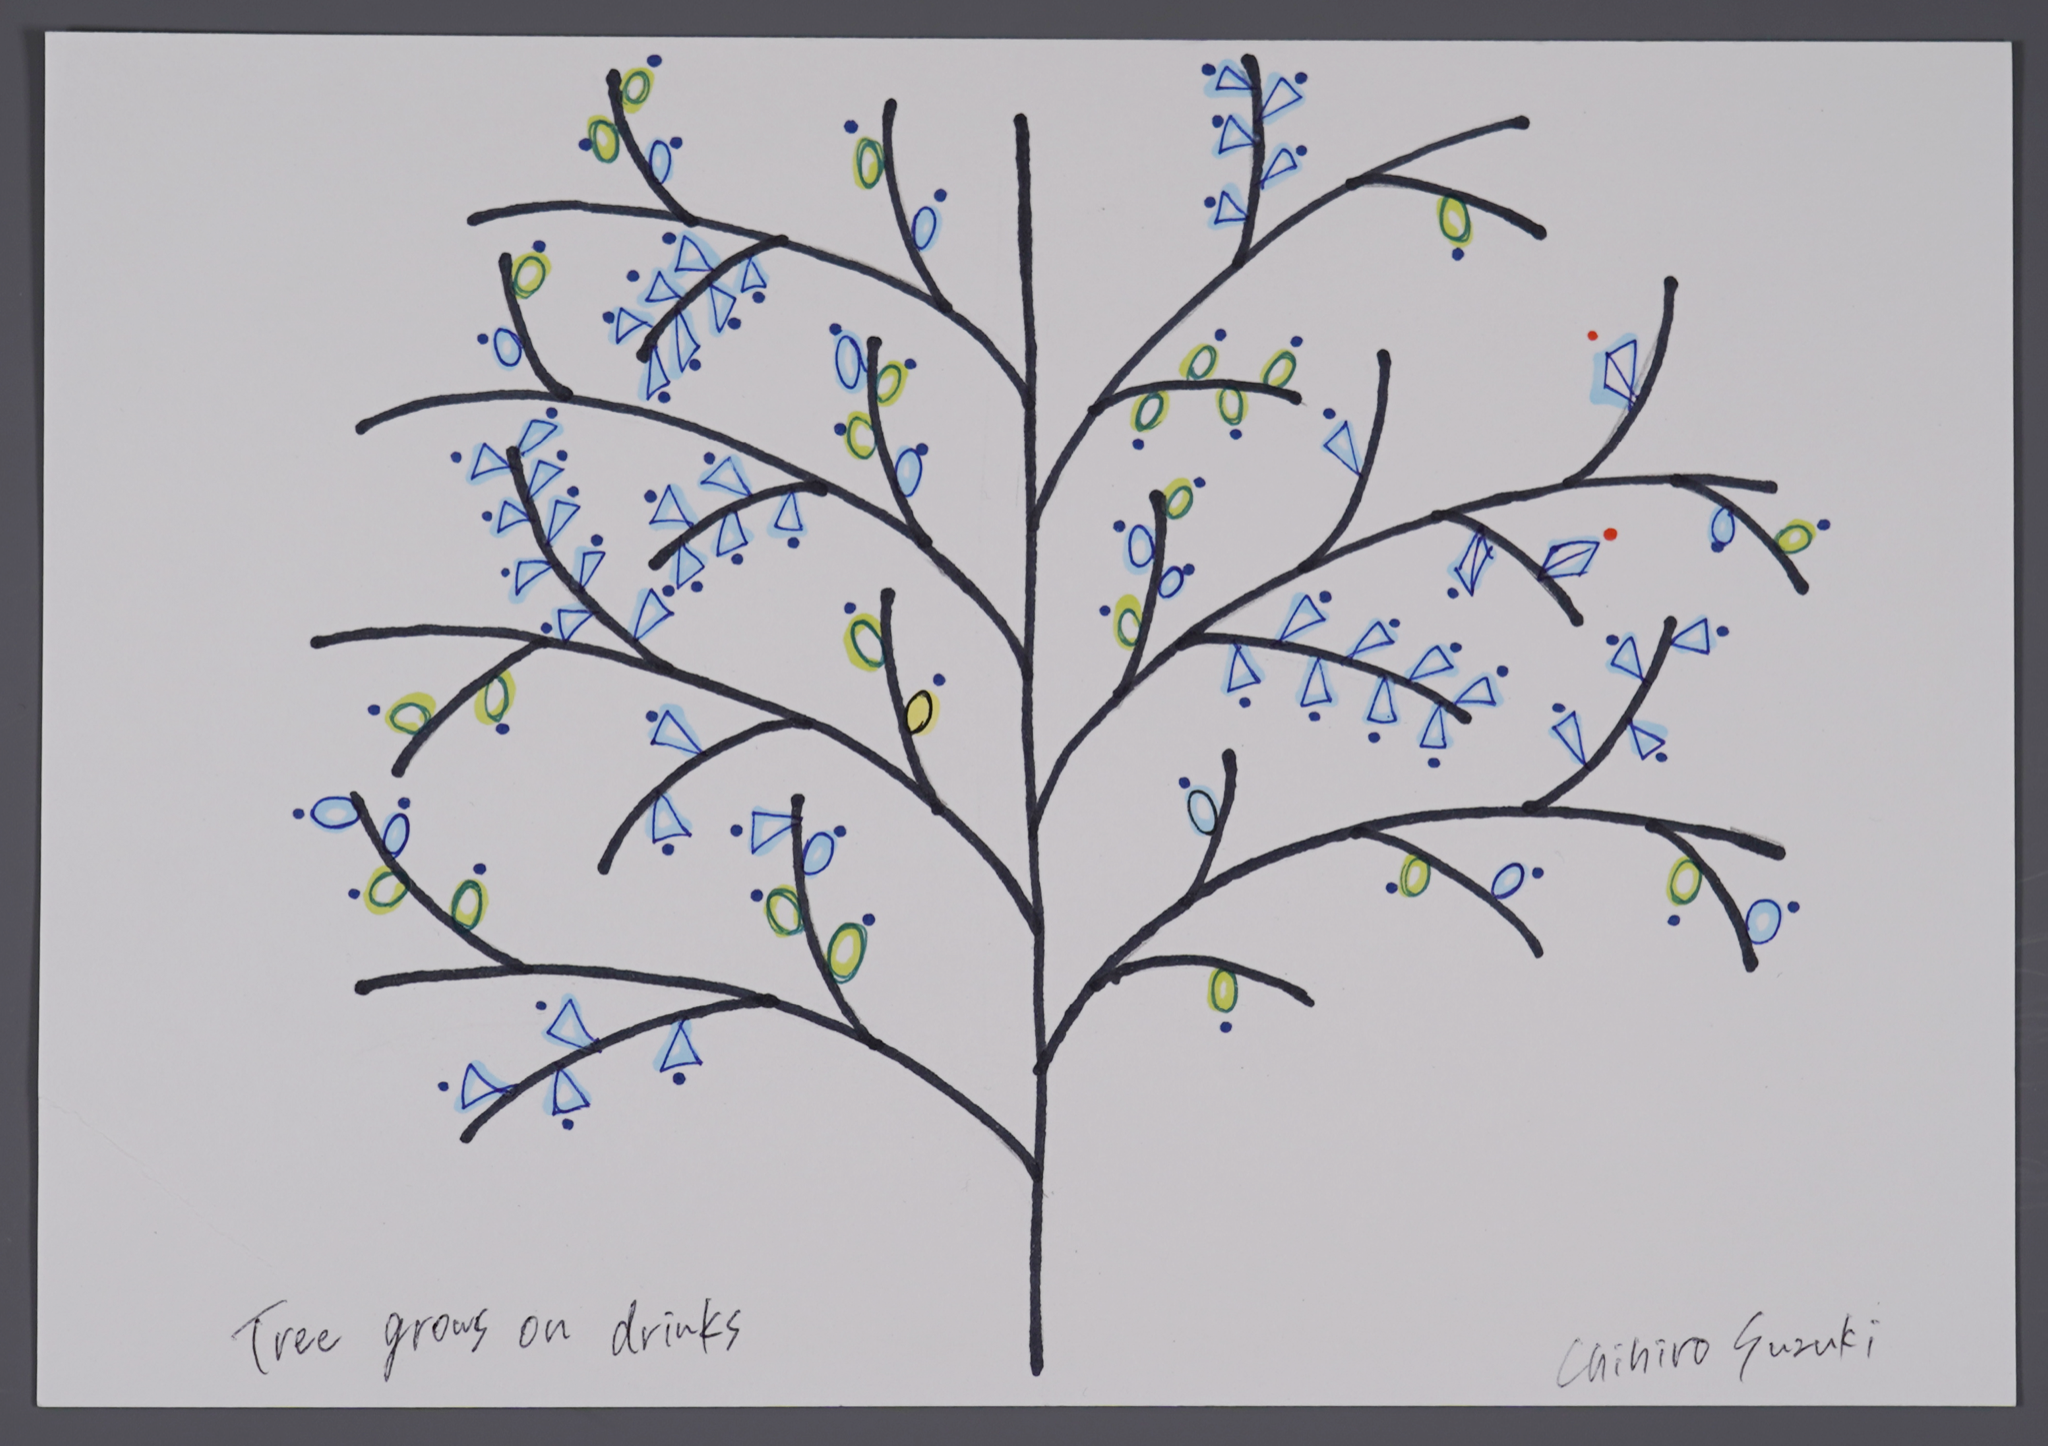 Tree grows on drinks
Chihiro Suzuki